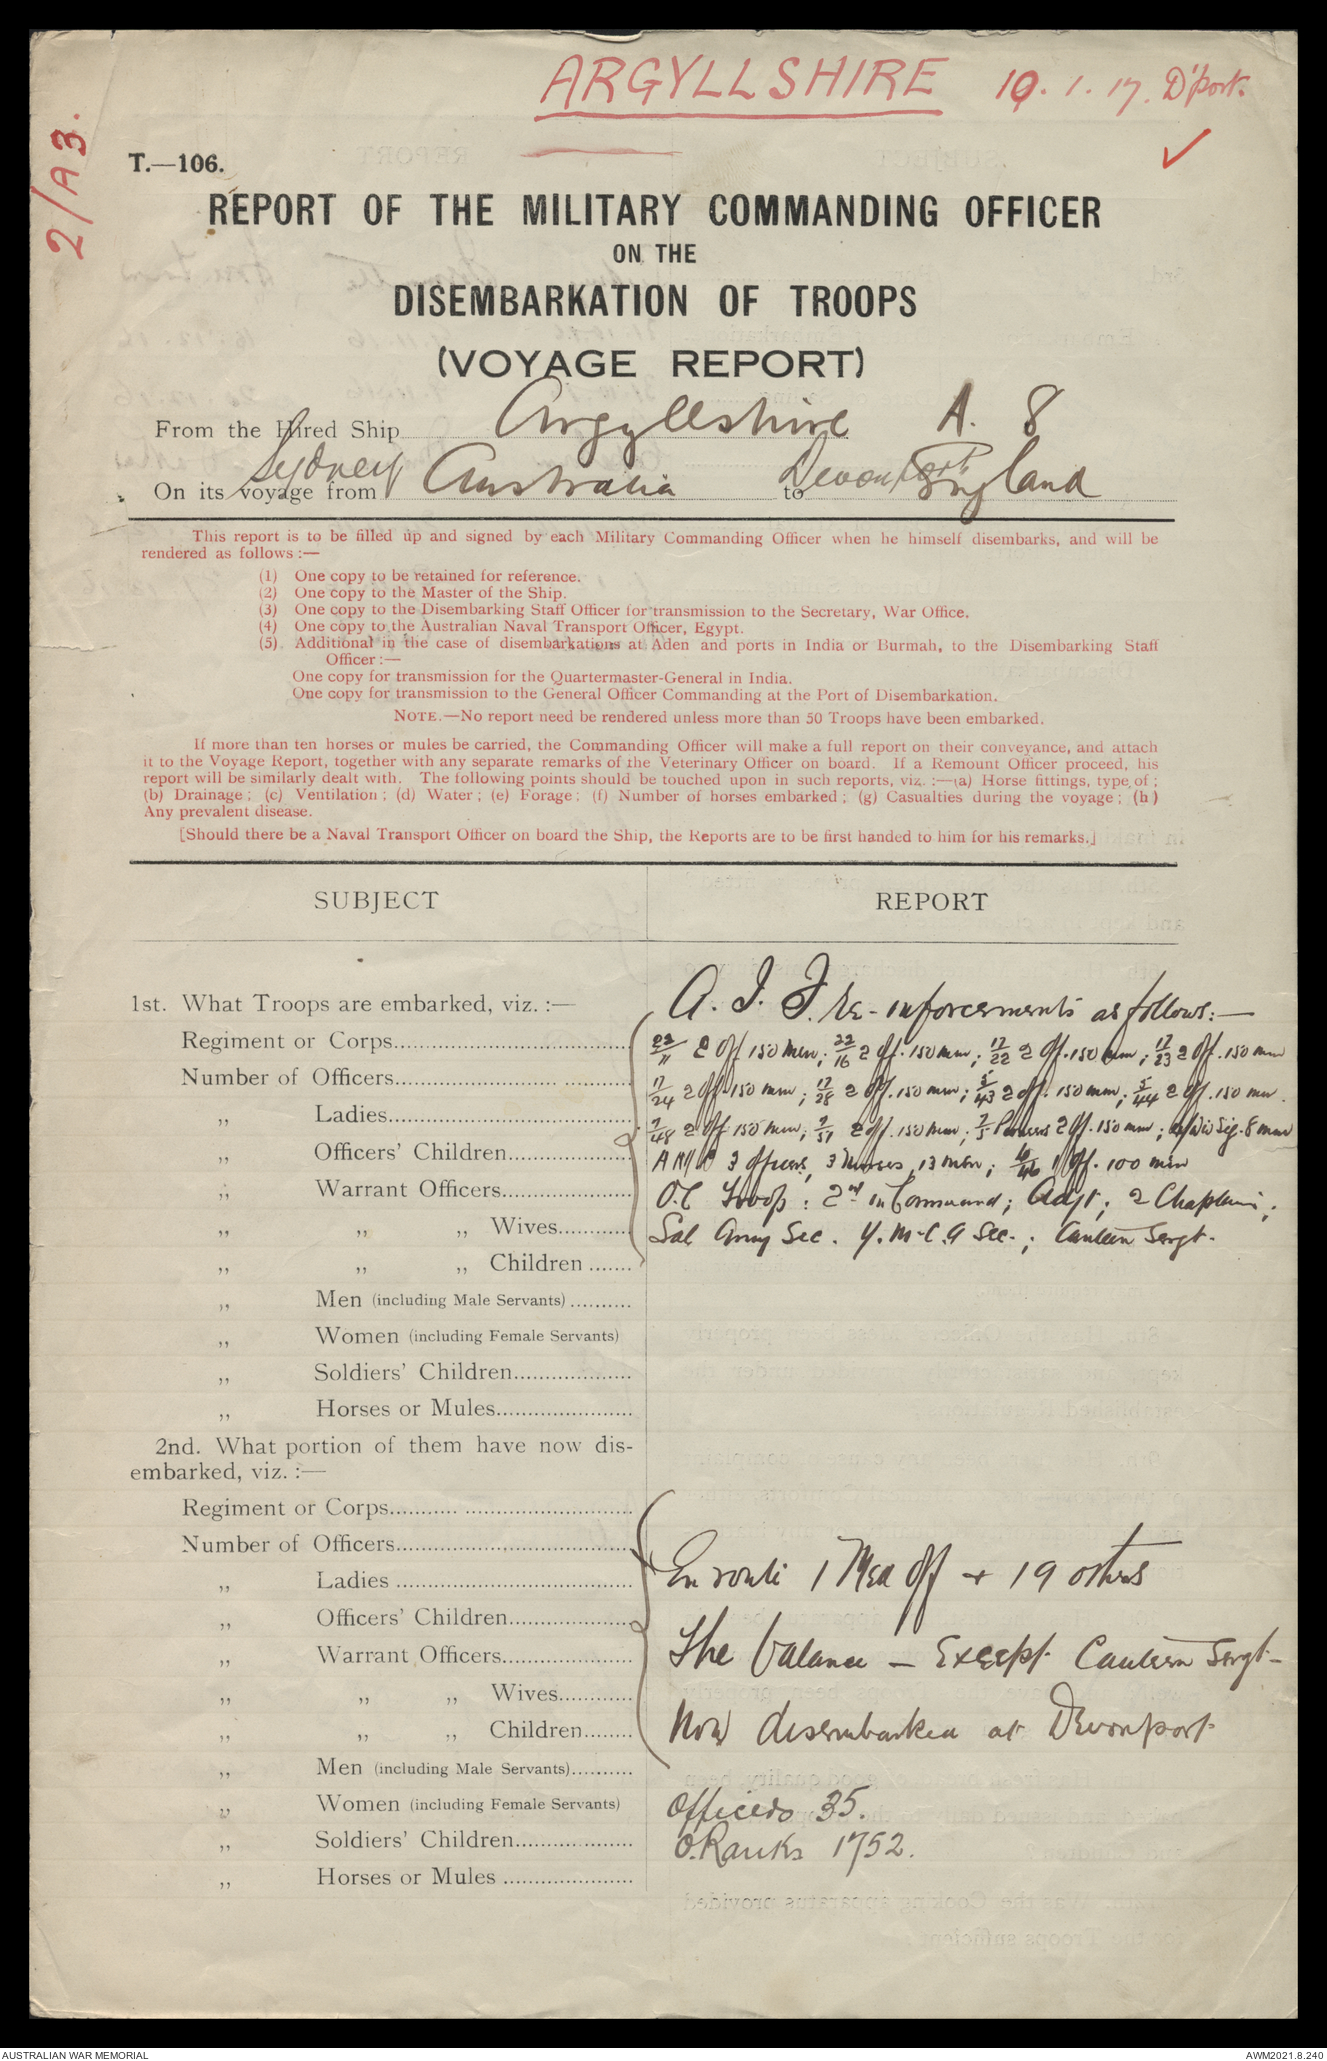 ARGYLLSHIRE 10.1.17. D'port.
2/A3.
T.—106.
REPORT OF THE MILITARY COMMANDING OFFICER
ON THE
DISEMBARKATION OF TROOPS
(VOYAGE REPORT)
From the Hired Ship Argyllshire A. 8
On its voyage from Sydney Australia to Devonport England
This report is to be filled up and signed by each Military Commanding Officer when he himself disembarks, and will be
rendered as follows :—
(1) One copy to be retained for reference.
(2) One copy to the Master of the Ship.
(3) One copy to the Disembarking Staff Officer for transmission to the Secretary, War Office.
(4) One copy to the Australian Naval Transport Officer, Egypt.
(5) Additional in the case of disembarkations at Aden and ports in India or Burmah, to the Disembarking Staff
Officer :—
One copy for transmission for the Quartermaster-General in India.
One copy for transmission to the General Officer Commanding at the Port of Disembarkation.
NOTE.—No report need be rendered unless more than 50 Troops have been embarked.
If more than ten horses or mules be carried, the Commanding Officer will make a full report on their conveyance, and attach
it to the Voyage Report, together with any separate remarks of the Veterinary Officer on board. If a Remount Officer proceed, his
report will be similarly dealt with. The following points should be touched upon in such reports, viz. :—(a) Horse fittings, type of ;
(b) Drainage ; (c) Ventilation ; (d) Water ; (e) Forage ; (f) Number of horses embarked ; (g) Casualties during the voyage ; (h)
Any prevalent disease.
[Should there be a Naval Transport Officer on board the Ship, the Reports are to be first handed to him for his remarks.]
SUBJECT REPORT
1st. What Troops are embarked, viz. :— A. I. F. Re-inforcements as follows:—
Regiment or Corps 22/11 2 Off 150 men; 22/16 2 Off. 150 men; 17/22 2 Off. 150 men; 17/23 2 Off. 150 men
Number of Officers 17/24 2 Off 150 men; 17/28 2 Off. 150 men; 5/43 2 Off. 150 men; 5/44 2 Off. 150 men.
„ Ladies 7/48 2 Off 150 men; 7/51 2 Off. 150 men; 7/5 Pioneers 2 Off. 150 men; Sig. 8 men
„ Officers' Children AMC 3 Officers, 3 Nurses, 13 men; 1 Off. 100 men
„ Warrant Officers O.C Troops: 2nd in Command; Adjt; 2 Chaplains;
„ „ „ Wives Sal Army Sec. Y.M.C.A Sec.; Canteen Sergt.
„ „ „ Children
„ Men (including Male Servants)
„ Women (including Female Servants)
„ Soldiers' Children
„ Horses or Mules
2nd. What portion of them have now dis-
embarked, viz. :—
Regiment or Corps
Number of Officers
„ Ladies En route 1 Med Off + 19 others
„ Officers' Children
„ Warrant Officers The balance — Except Canteen Sergt—
„ „ „ Wives
„ „ „ Children Now disembarked at Devonport
„ Men (including Male Servants)
„ Women (including Female Servants) Officers 35.
„ Soldiers' Children O.Ranks 1752.
„ Horses or Mules
AUSTRALIAN WAR MEMORIAL AWM2021.8.240